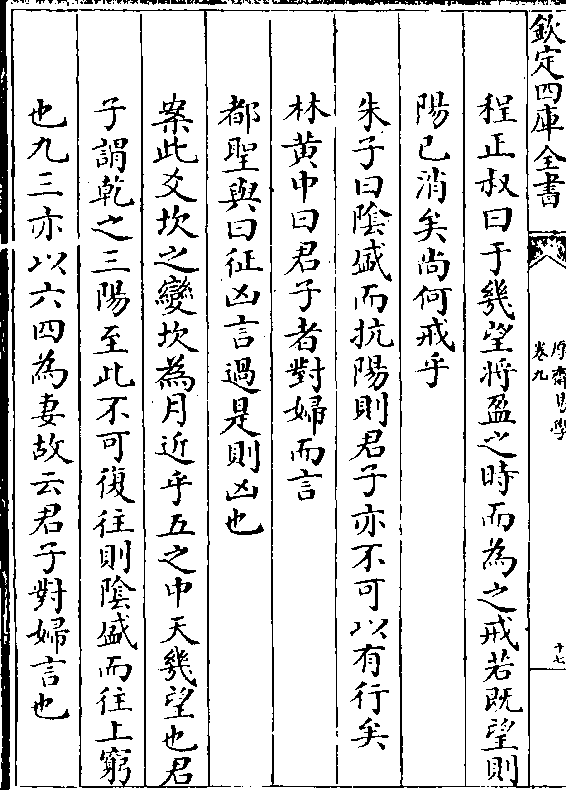 欽定四庫全書
厚齋易學
卷九
十七
程正叔曰于幾望將盈之時而為之戒若既望則
陽已消矣尚何戒乎
朱子曰陰盛而抗陽則君子亦不可以有行矣
林黃中曰君子者對婦而言
都聖與曰征凶言過是則凶也
案此爻坎之變坎為月近乎五之中天幾望也君
子謂乾之三陽至此不可復往則陰盛而往上窮
也九三亦以六四為妻故云君子對婦言也